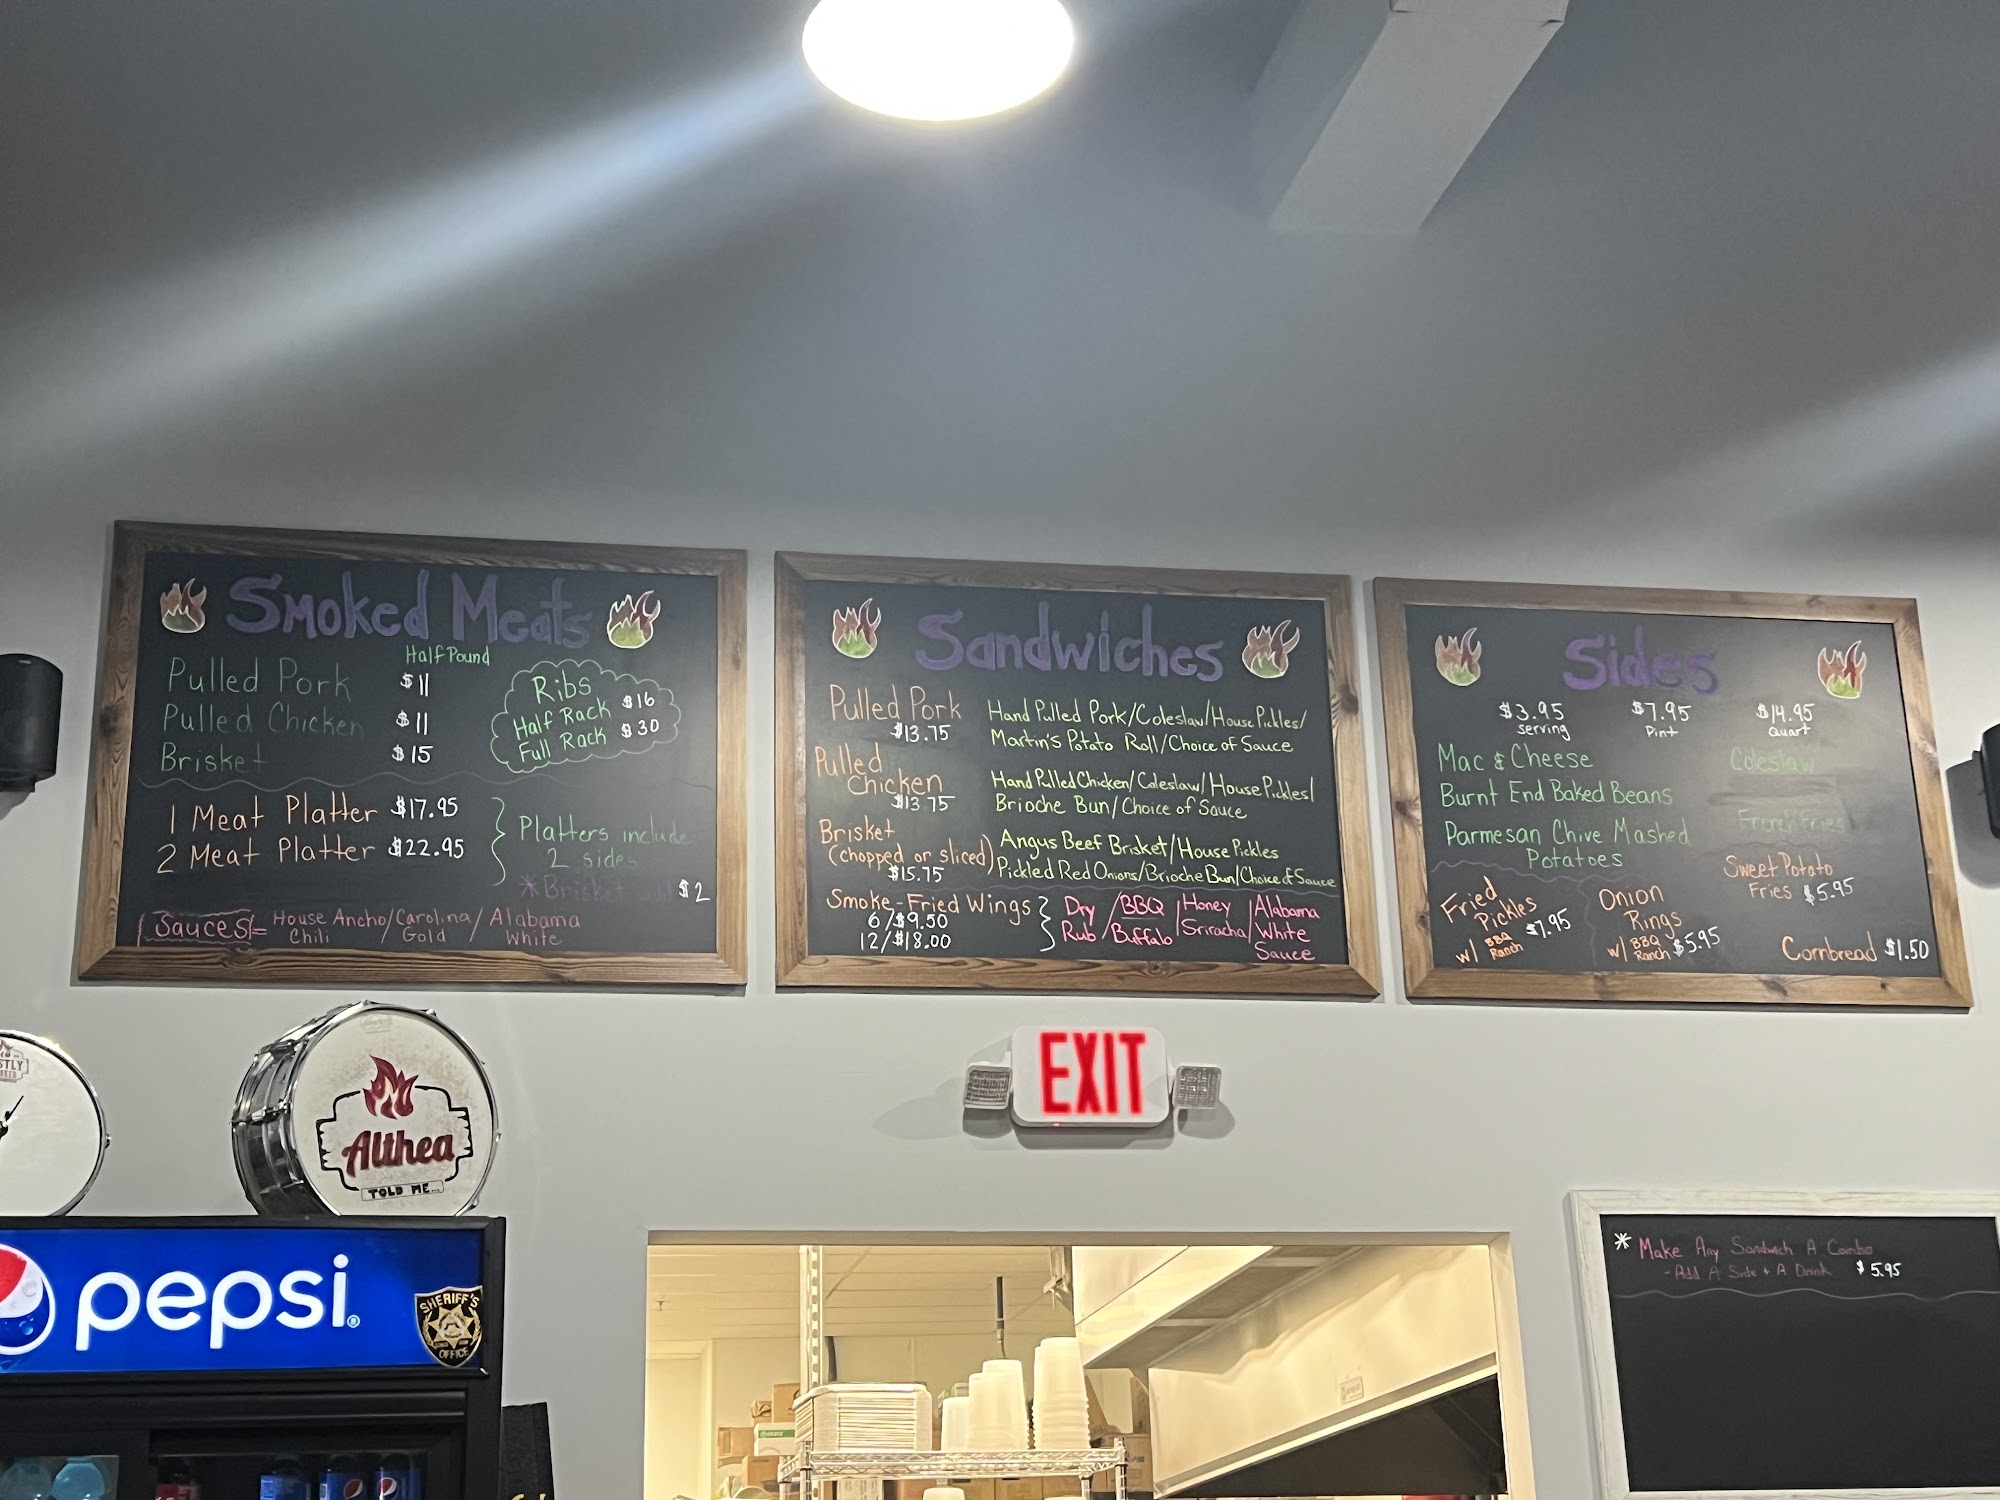 Smoked Meats
Half Pound
Pulled Pork $11
Pulled Chicken $11
Brisket $15
Ribs
Half Rack $16
Full Rack $30
1 Meat Platter $17.95
2 Meat Platter $22.95
Platters include
2 sides
*Brisket add $2
Sauces= House Ancho/Carolina/Alabama
Chili Gold White
Sandwiches
Pulled Pork
$13.75
Hand Pulled Pork/Coleslaw/House Pickles/
Martin's Potato Roll/Choice of Sauce
Pulled
Chicken
$13.75
Hand Pulled Chicken/Coleslaw/House Pickles/
Brioche Bun/Choice of Sauce
Brisket
(chopped or sliced)
$15.75
Angus Beef Brisket/House Pickles
Pickled Red Onions/Brioche Bun/Choice of Sauce
Smoke-Fried Wings
6/$9.50
12/$18.00
Dry
Rub
BBQ
Buffalo
Honey
Sriracha
Alabama
White
Sauce
Sides
$3.95
serving
$7.95
Pint
$14.95
Quart
Mac & Cheese
Burnt End Baked Beans
Parmesan Chive Mashed
Potatoes
Coleslaw
French Fries
Sweet Potato
Fries $5.95
Fried
Pickles
w/ BBQ
Ranch
Onion
Rings
w/ BBQ
Ranch $5.95
Cornbread $1.50
EXIT
Althea
TOLD ME...
pepsi
SHERIFF'S
OFFICE
* Make Any Sandwich A Combo
- Add A Side + A Drink $5.95